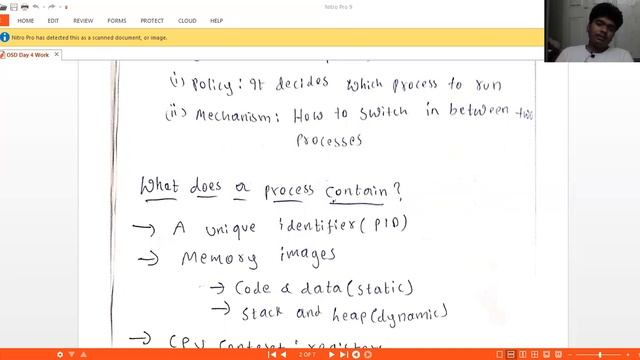 Nitro Pro 9
HOME EDIT REVIEW FORMS PROTECT CLOUD ERASE HELP
Nitro Pro has detected this as a scanned document, or image.
OSD Day 4 Work
(i) Policy: It decides which process to run
(ii) Mechanism: How to switch in between two
processes
What does a process contain?
→ A unique identifier (PID)
→ Memory images
→ Code & data (static)
→ Stack and heap (dynamic)
→ CPU context: registers
2 OF 7